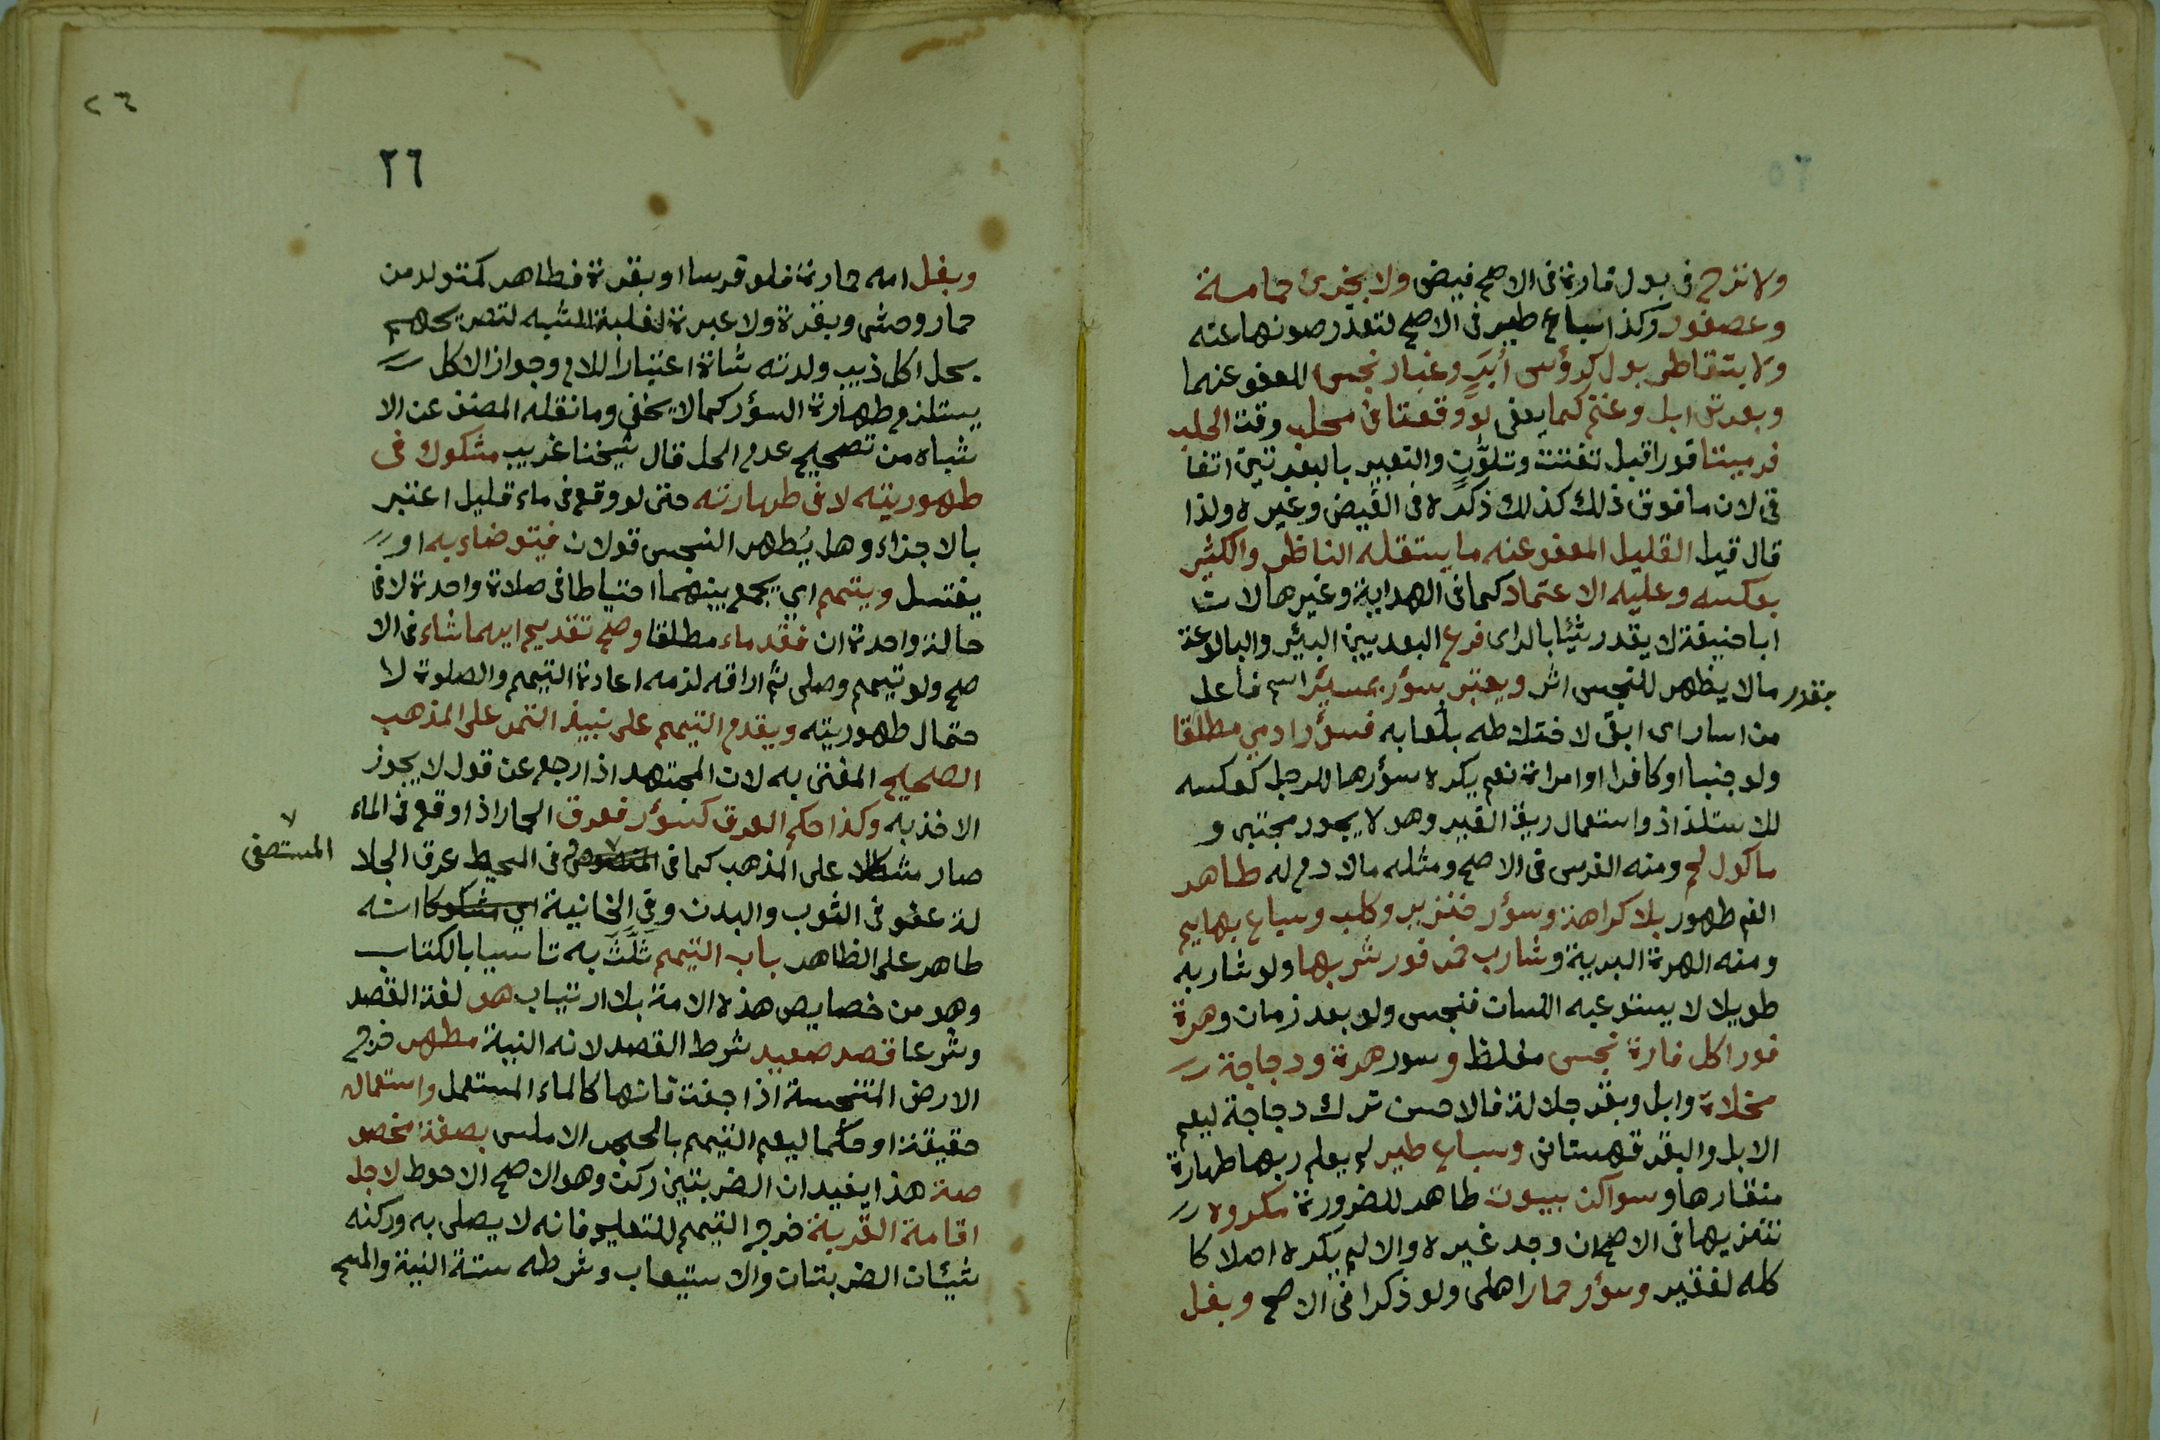 ولا نزح فى بول فارة فى الاصح فيض ولا بخرئ حمامة
وعصفور وكذا سباع طير فى الاصح لتعذر صونها عنه
ولا بتقاطر بول كرؤس أبر وغبار نجس للعفو عنهما
وبعرتى ابل وغنم كما يعفى لو وقعتا فى محلب وقت الحلب
فرميتا فورا قبل تفتت وتلوّن والتعبير بالبعرتين اتفا
قى لان ما فوق ذلك كذلك ذكره فى الفيض وغيره ولذا
قال قيل القليل المعفو عنه ما يستقله الناظر والكثير
بعكسه وعليه الاعتماد كما فى الهداية وغيرها لان
ابا حنيفة لا يقدر شيئا بالراى فرع البعد بين البئر والبالاعة
بقدر ما لا يظهر للنجس اثر ويعتبر سؤر بمسئر اسم فاعل
من اسار اى ابقى لاختلاطه بلعابه فسؤر ادمي مطلقا
ولو جنبا او كافرا او امراة نعم يكره سؤرها للرجل كعكسه
للاستلذاذ واستعمال ريق الغير وهو لا يجوز مجتبى و
ماكول لحم ومنه الفرس فى الاصح ومثله مالا دم له طاهر
الفم طهور بلا كراهة وسؤر خنزير وكلب وسباع بهايم
ومنه الهرة البرية وشارب خمر فور شربها ولو شاربه
طويلا لا يستوعبه اللسان فنجس ولو بعد زمان وهرة
فور اكل فارة نجس مغلظ وسور هرة ودجاجة
مخلاة وابل وبقر جلالة فالاحسن ترك دجاجة ليعم
الابل والبقر قهستانى وسباع طير لم يعلم ربها طهارة
منقارها وسواكن بيوت طاهر للضرورة مكروه
تنزيها فى الاصح ان وجد غيره والا لم يكره اصلا كا
كله لفقير وسؤر حمار اهلى ولو ذكرا فى الاصح وبغل
٢٦
٢٦
وبغل امه حمارة فلو فرسا او بقرة فطاهر كمتولد من
حمار وحشى وبقرة ولا عبرة لغلبة الشبه لتصريحهم
بحل اكل ذيب ولدته شاة اعتبارا للام وجواز الاكل
يستلزم طهارة السؤر كما لا يخفى وما نقله المصنف عن الا
شباه من تصحيح عدم الحل قال شيخنا غريب مشكوك فى
طهوريته لا فى طهارته حتى لو وقع فى ماء قليل اعتبر
بالاجزاء وهل يُطهر النجس قولان فيتوضاء به او
يغتسل ويتيمم اي يجمع بينهما احتياطا فى صلاة واحدة لا فى
حالة واحدة ان فقد ماء مطلقا وصح تقديم ايهما شاء فى الا
صح ولو تيمم وصلى ثم اراقه لزمه اعادة التيمم والصلوة لا
حتمال طهوريته ويقدم التيمم على نبيذ التمر على المذهب
الصحيح المفتى به لان المجتهد اذا رجع عن قول لا يجوز
الاخذ به وكذا حكم العرق كسؤر فعرق الحمار اذا وقع فى الماء
صار مشكلا على المذهب كما فى المستصفى فى المحيط عرق الجلا
لة عفو فى الثوب والبدن وفى الخانية انه
طاهر على الظاهر باب التيمم ثَلَّثَ به تاسيا بالكتاب
وهو من خصايص هذه الامة بلا ارتياب هو لغة القصد
وشرعا قصد صعيد شرط القصد لانه النية مطهر خرج
الارض المتنجسة اذا جفت فانها كالماء المستعمل واستعماله
حقيقة او حكما ليعم التيمم بالحجر الاملس بصفة مخصو
صة هذا يفيد ان الضربتين ركن وهو الاصح الاحوط لاجل
اقامة القربة خرج التيمم للتعليم فانه لا يصلى به وركنه
شيئان الضربتان والاستيعاب وشرطه ستة النية والمسح